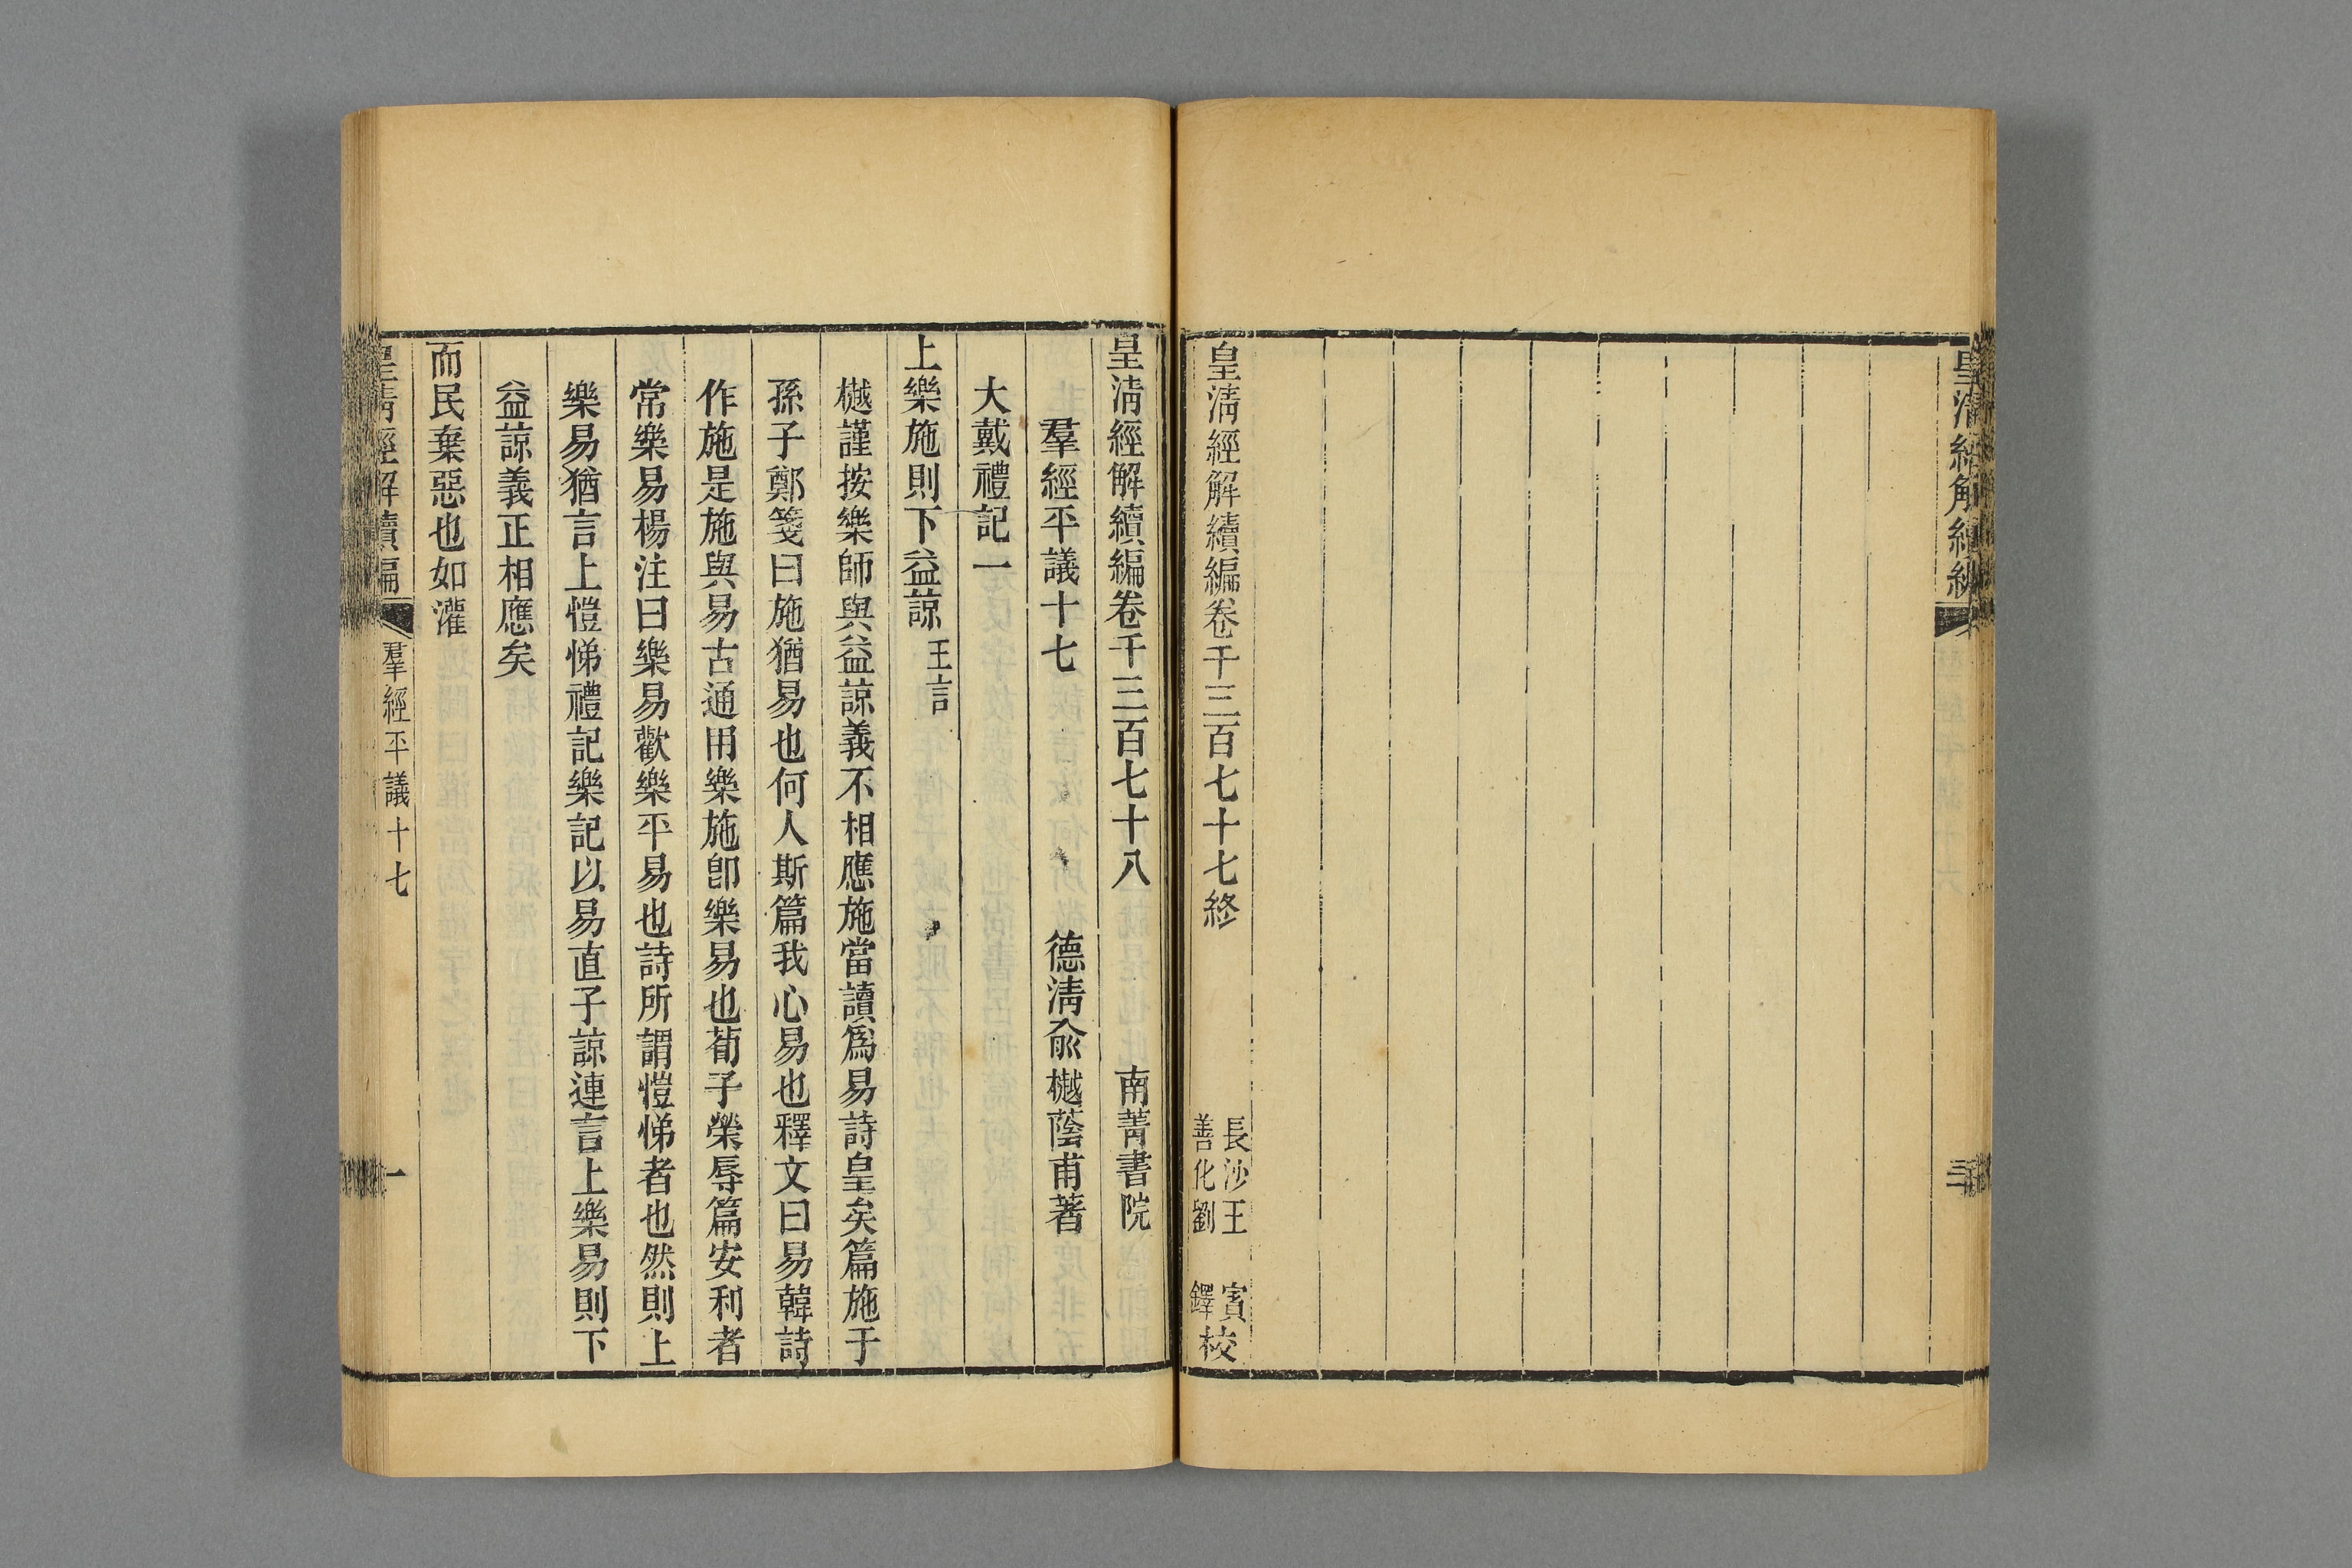 皇清經解續編
三
皇清經解續編卷千三百七十七終
長沙王
善化劉
賓
鐸
校
皇清經解續編卷千三百七十八 南菁書院
羣經平議十七 德清兪樾蔭甫著
大戴禮記一
上樂施則下益諒 王言
樾謹按樂師與益諒義不相應施當讀爲易詩皇矣篇施于
孫子鄭箋曰施猶易也何人斯篇我心易也釋文曰易韓詩
作施是施與易古通用樂施卽樂易也荀子榮辱篇安利者
常樂易楊注曰樂易歡樂平易也詩所謂愷悌者也然則上
樂易猶言上愷悌禮記樂記以易直子諒連言上樂易則下
益諒義正相應矣
而民棄惡也如灌
皇清經解續編 羣經平議十七 一